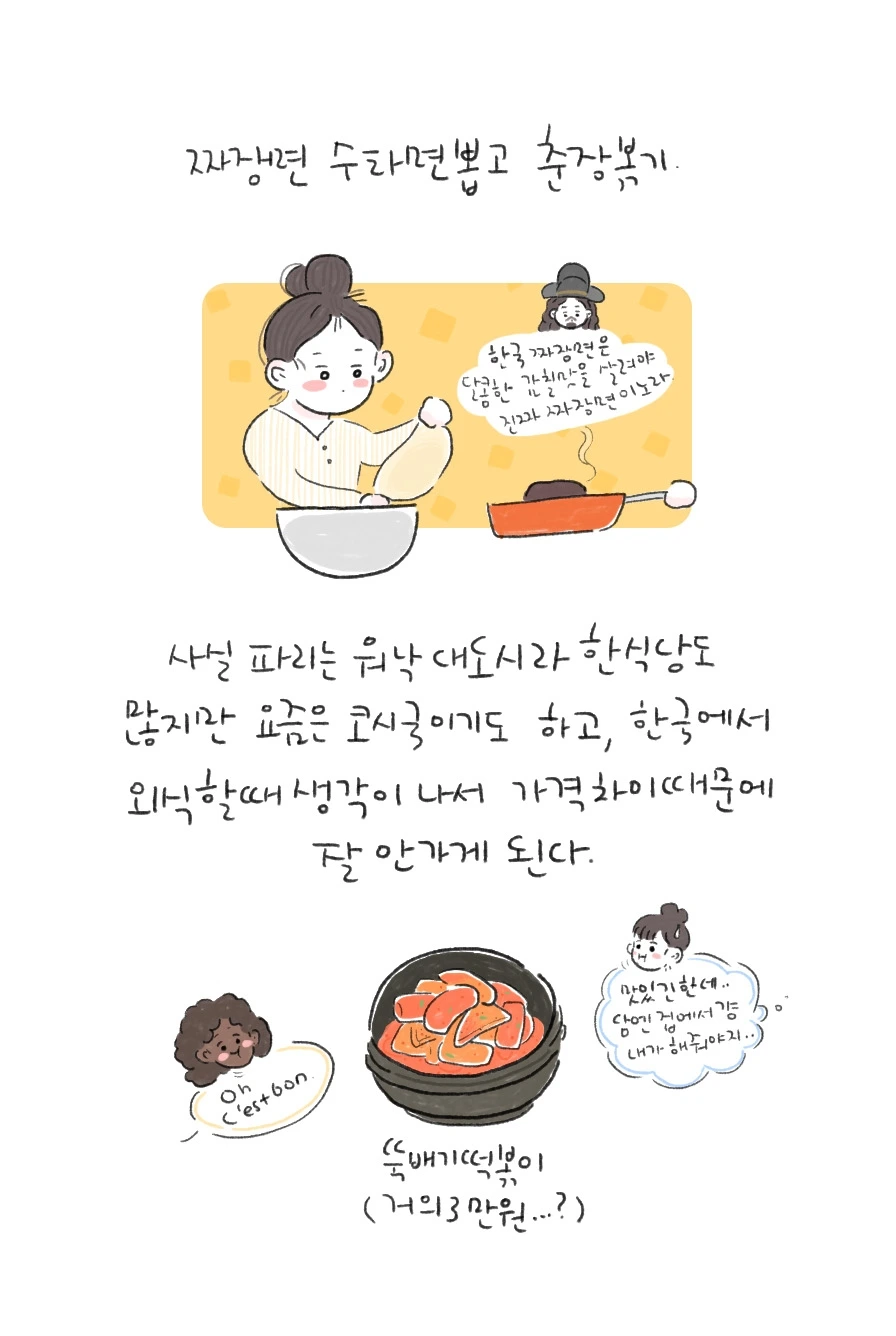 짜장면 수타면뽑고 춘장볶기.
한국 짜장면은
달콤한 감칠맛을 살려야
진짜 짜장면이노라
사실 파리는 워낙 대도시라 한식당도
많지만 요즘은 코시국이기도 하고, 한국에서
외식할때 생각이 나서 가격차이때문에
잘 안가게 된다.
맛있긴한데..
담엔 집에서 걍
내가 해줘야지..
Oh
C'est bon.
뚝배기떡볶이
(거의3만원...?)